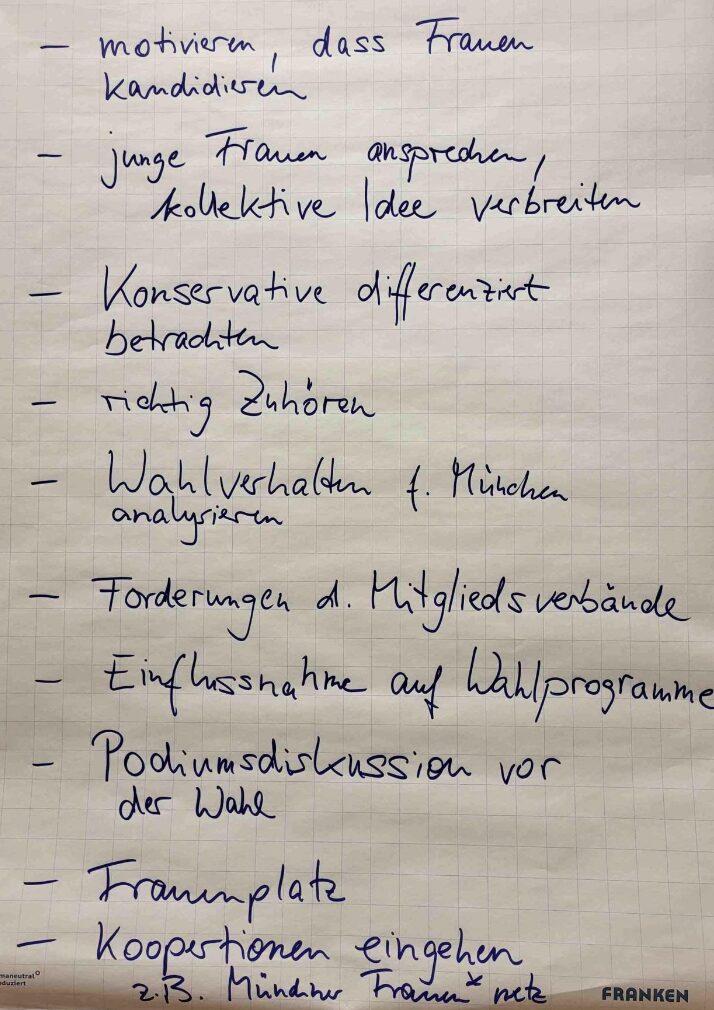 - motivieren, dass Frauen
kandidieren
- junge Frauen ansprechen,
kollektive Idee verbreiten
- Konservative differenziert
betrachten
- richtig Zuhören
- Wahlverhalten f. München
analysieren
- Forderungen d. Mitgliedsverbände
- Einflussnahme auf Wahlprogramme
- Podiumsdiskussion vor
der Wahl
- Frauenplatz
- Koopertionen eingehen
z.B. Münchner Frauen*netz
maneutral
duziert
FRANKEN